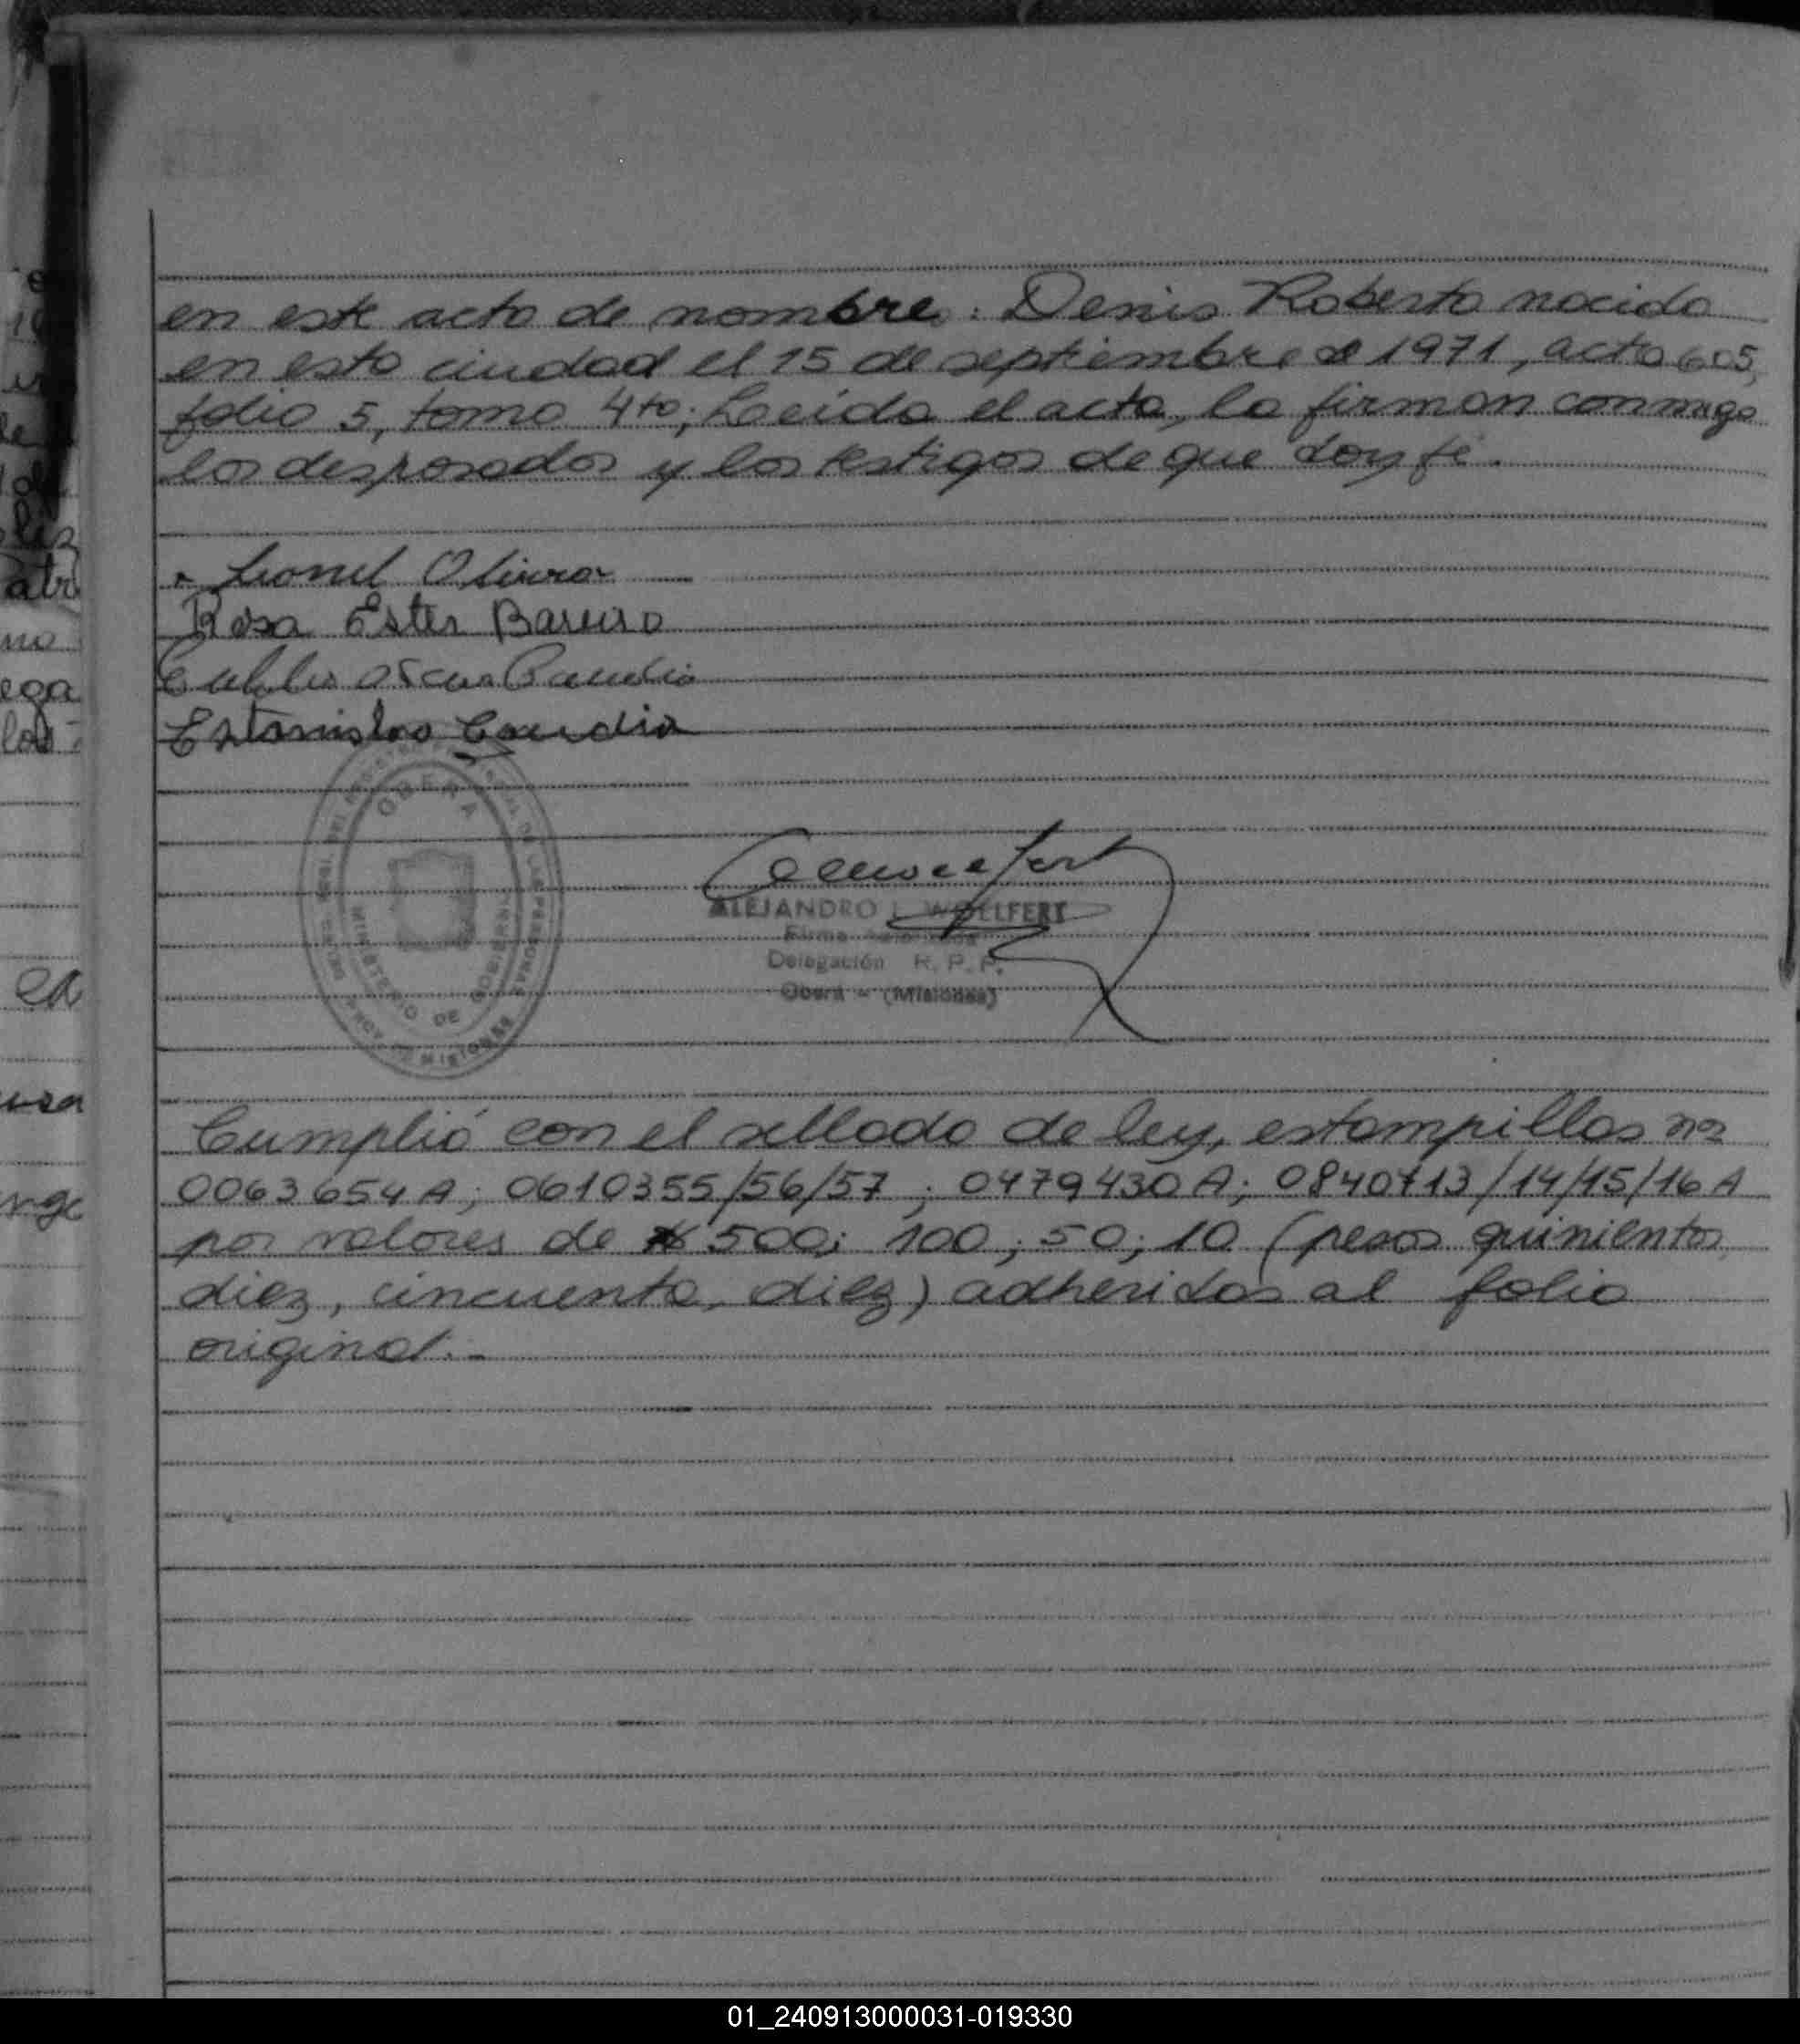 en este acto de nombre: Denis Roberto nacido
en esta ciudad el 15 de septiembre de 1971, acta 605,
folio 5, tomo 4to; Leída el acta, la firman conmigo
los desposados y los testigos de que doy fe.
Leonel Olivera
Rosa Ester Barreiro
Oscar
Estanislao Candia
OBERA
MINISTERIO DE GOBIERNO
DE LAS PERSONAS
PROV. DE MISIONES
ALEJANDRO L. WOELFERT
Firma Autorizada
Delegación R. P. P.
Oberá - (Misiones)
Cumplió con el sellado de ley, estampillas nos
0063654 A; 0610355/56/57; 0479430 A; 0840713/14/15/16 A
por valores de $ 500; 100; 50; 10 (pesos quinientos
diez, cincuenta, diez) adheridas al folio
original.-
ega
las
01_240913000031-019330